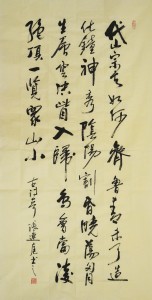 岱宗夫如何齊魯青未了造
化鐘神秀陰陽割昏曉蕩胸
生層雲決眥入歸鳥會當凌
絕頂一覽眾山小